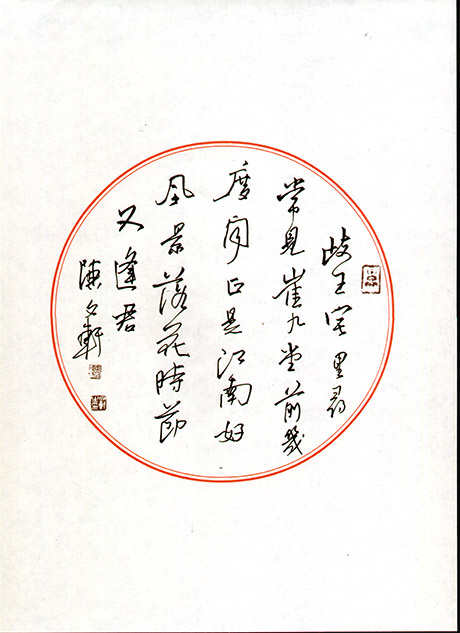 岐王宅里尋
常見崔九堂前幾
度聞正是江南好
風景落花時節
又逢君
陳文軒